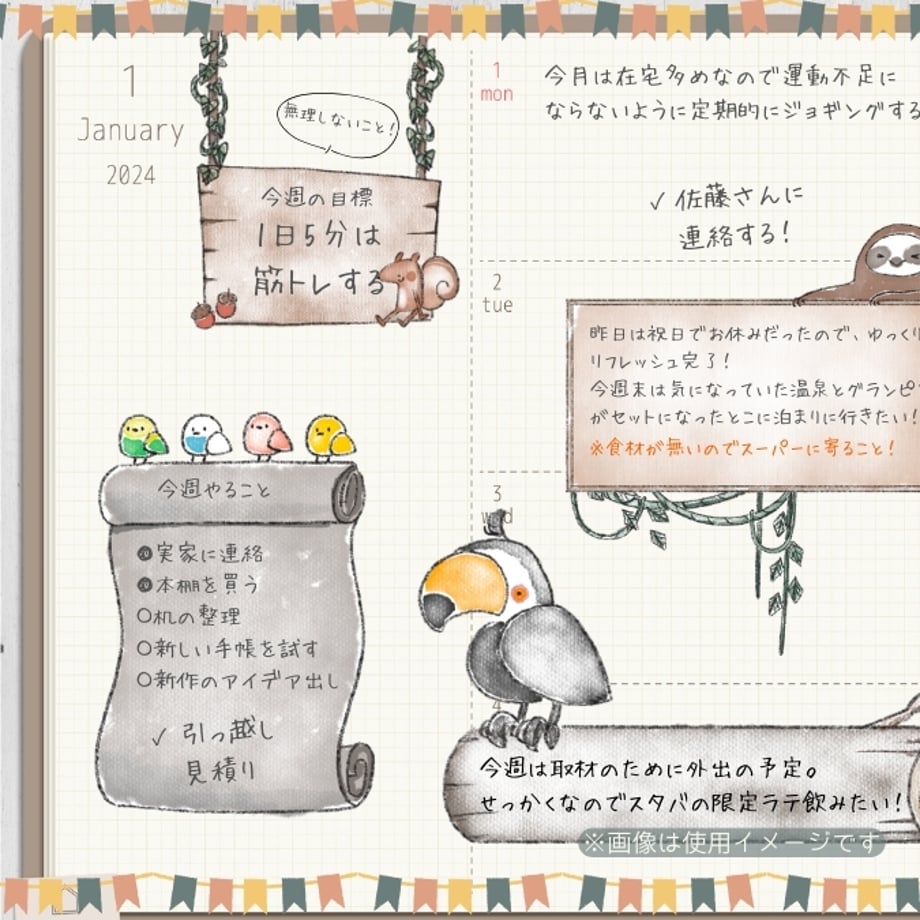 1
January
2024
無理しないこと!
今週の目標
1日5分は
筋トレする
今週やること
実家に連絡
本棚を買う
○机の整理
○新しい手帳を試す
○新作のアイデア出し
✓ 引っ越し
見積り
1
mon
今月は在宅多めなので運動不足に
ならないように定期的にジョギングする
✓ 佐藤さんに
連絡する!
2
tue
昨日は祝日でお休みだったので、ゆっくり
リフレッシュ完了!
今週末は気になっていた温泉とグランピ
がセットになったとこに泊まりに行きたい!
※食材が無いのでスーパーに寄ること!
3
wed
4
今週は取材のために外出の予定。
せっかくなのでスタバの限定ラテ飲みたい!
※画像は使用イメージです